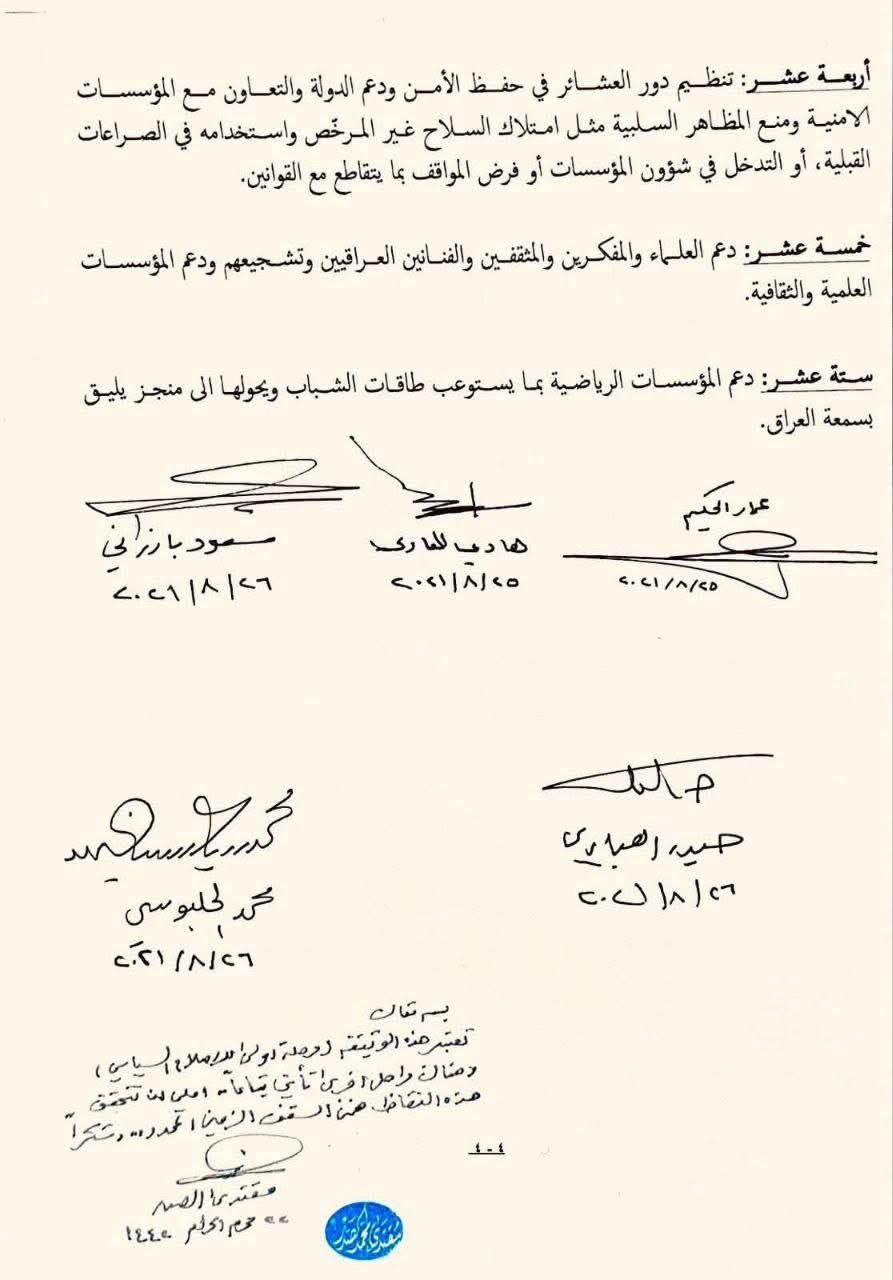 أربعة عشر: تنظيم دور العشائر في حفظ الأمن ودعم الدولة والتعاون مع المؤسسات
الامنية ومنع المظاهر السلبية مثل امتلاك السلاح غير المرخّص واستخدامه في الصراعات
القبلية، أو التدخل في شؤون المؤسسات أو فرض المواقف بما يتقاطع مع القوانين.
خمسة عشر: دعم العلماء والمفكرين والمثقفين والفنانين العراقيين وتشجيعهم ودعم المؤسسات
العلمية والثقافية.
ستة عشر: دعم المؤسسات الرياضية بما يستوعب طاقات الشباب ويحولها الى منجز يليق
بسمعة العراق.
عمار الحكيم
٢٠٢١/٨/٢٥
هادي العامري
٢٠٢١/٨/٢٥
مسعود بارزاني
٢٠٢١/٨/٢٦
حيدر العبادي
٢٠٢١/٨/٢٦
محمد الحلبوسي
٢٠٢١/٨/٢٦
بسمه تعالى
تعتبر هذه الوثيقة (مرحلة اولى للاصلاح السياسي)
وهناك مراحل اخرى تأتي تباعاً، املي ان تتحقق
هذه النقاط ضمن السقف الزمني المحدد.. وشكراً
مقتدى الصدر
محرم الحرام ١٤٤٢
٤-٤